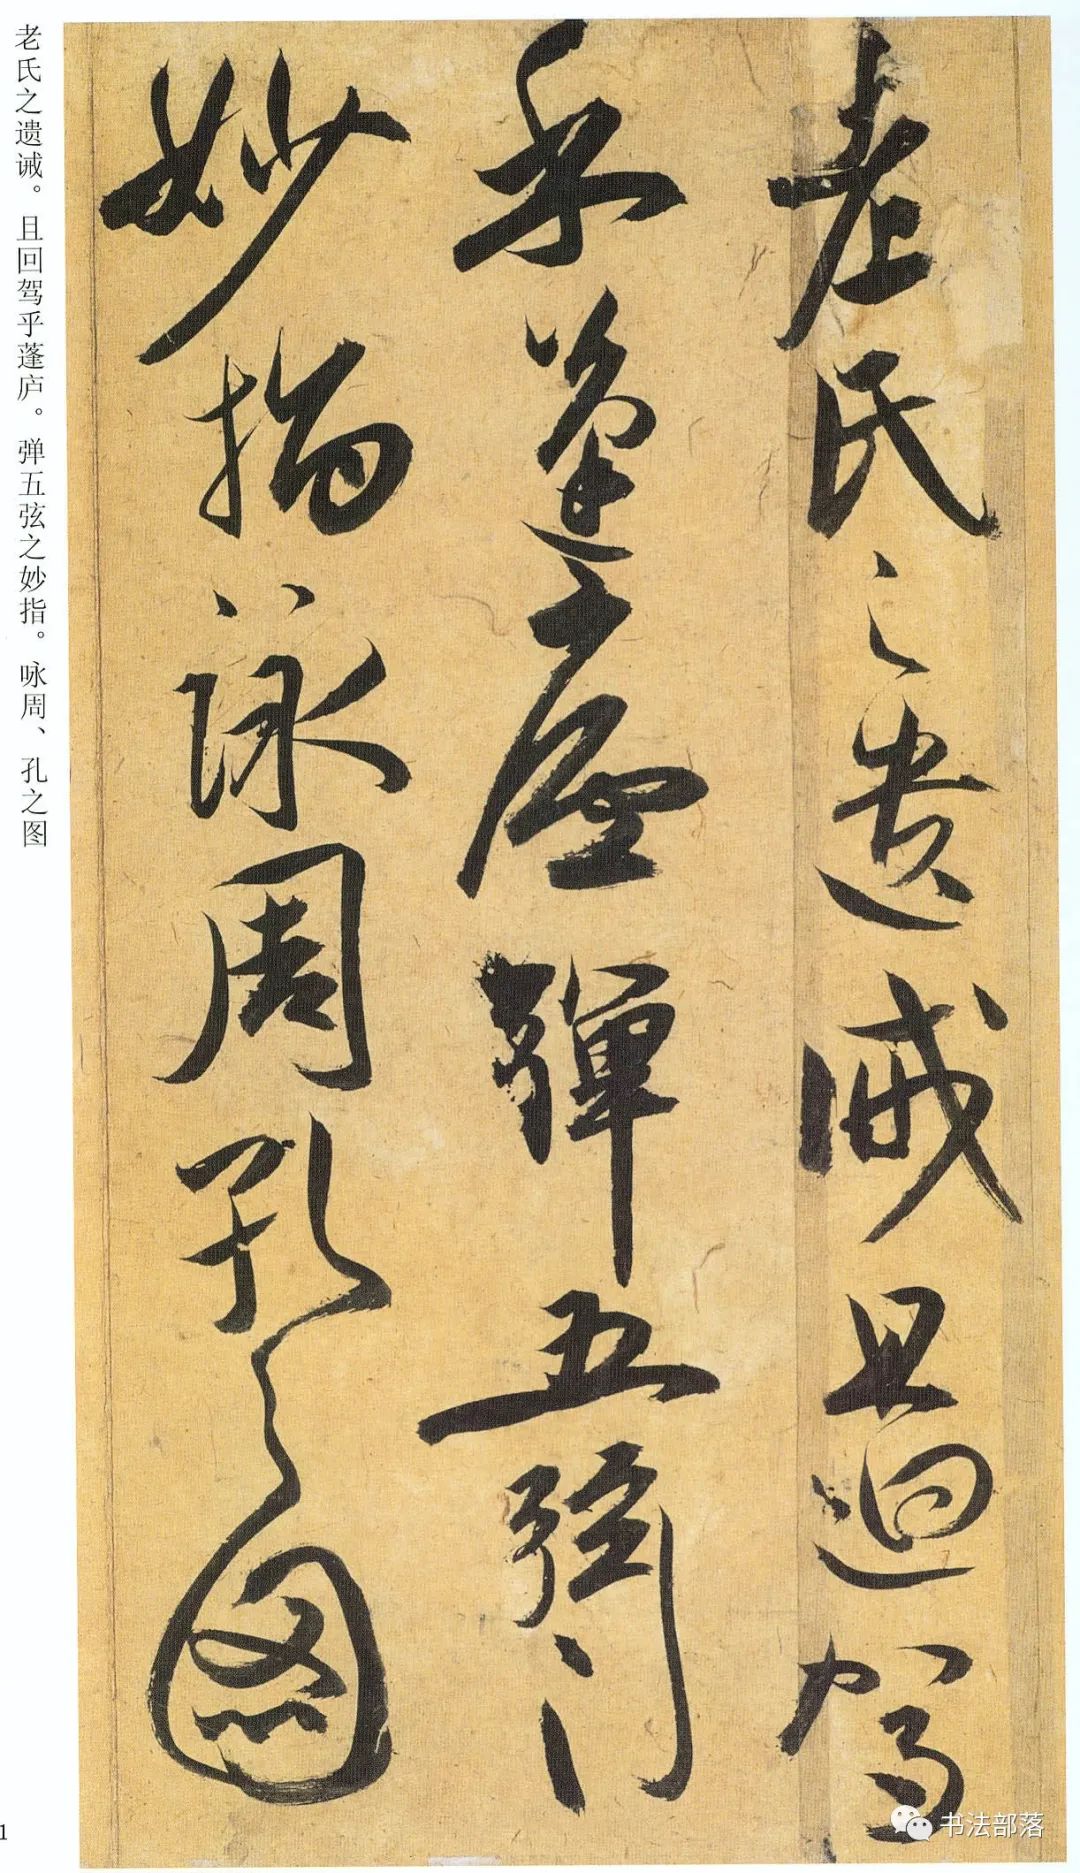 老氏之遺誡且迴駕
乎蓬廬彈五弦之
妙指詠周孔之圖
老氏之遗诫。且回驾乎蓬庐。弹五弦之妙指。咏周、孔之图
1
书法部落